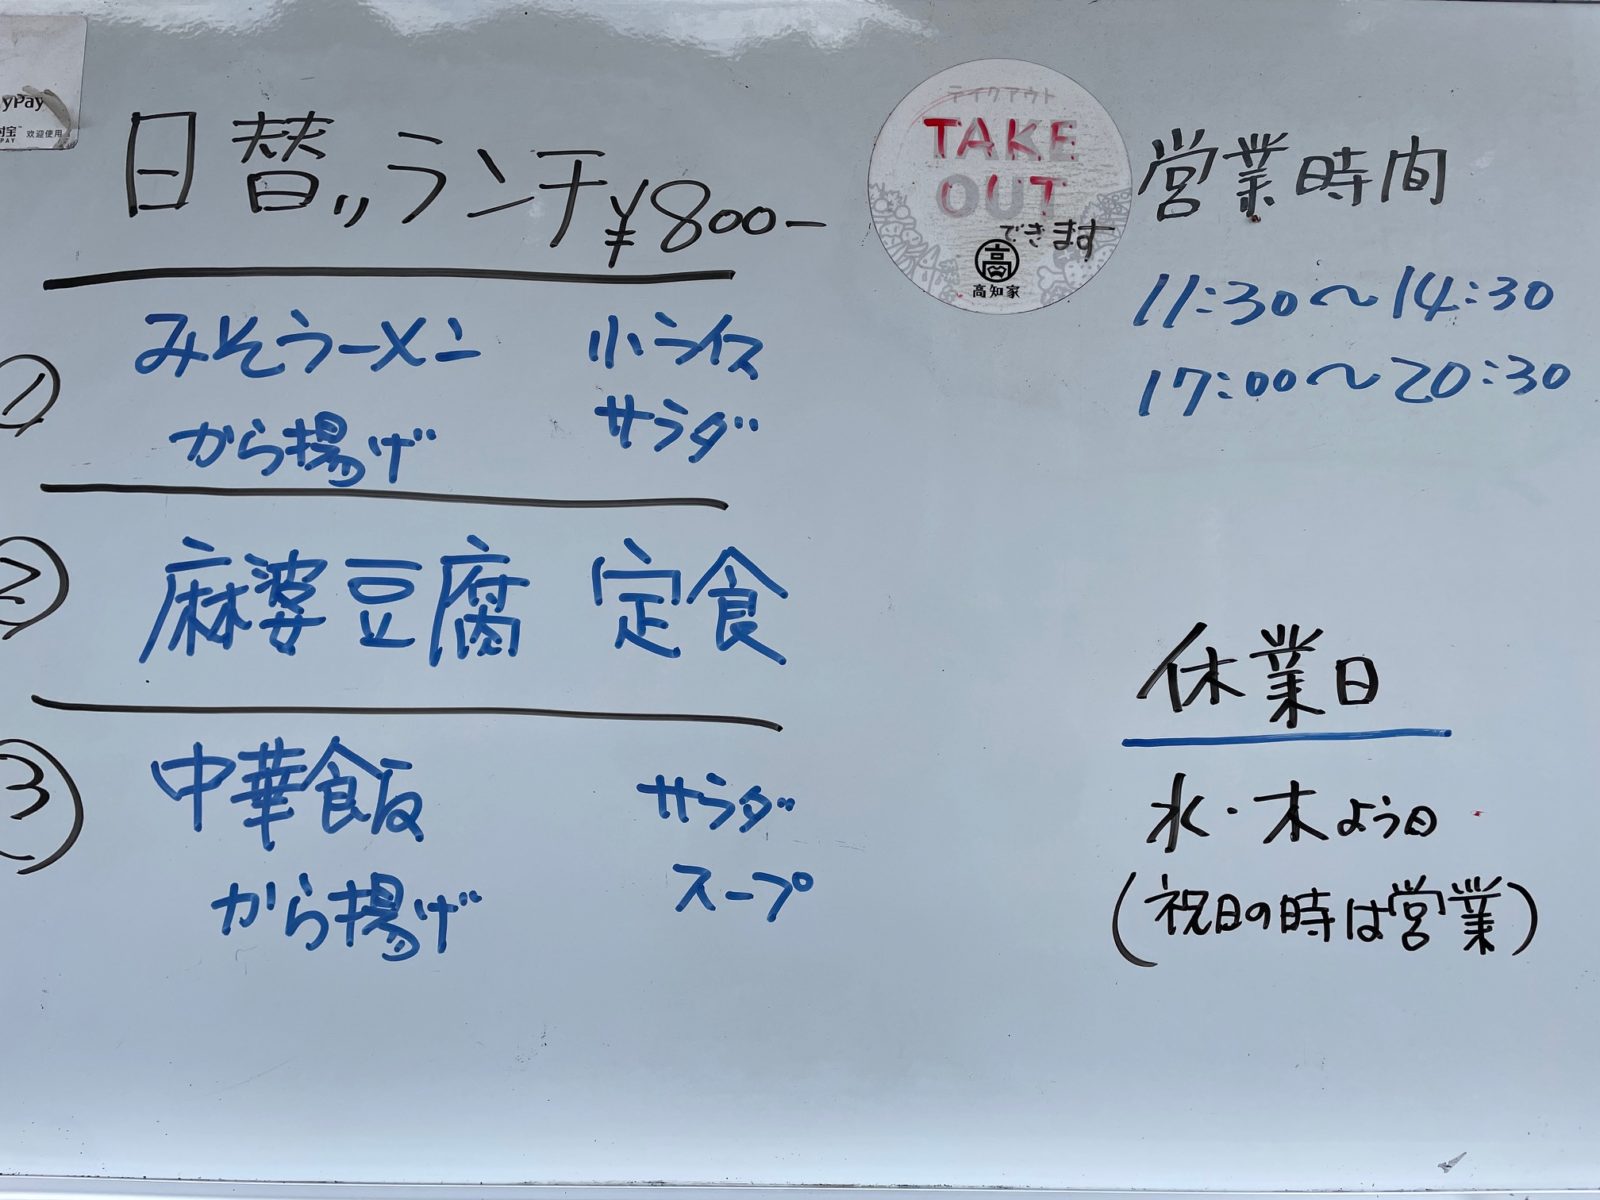 yPay
付宝
PAY
欢迎使用
日替りランチ ¥800-
① みそラーメン 小ライス
から揚げ サラダ
② 麻婆豆腐 定食
③ 中華飯 サラダ
から揚げ スープ
テイクアウト
TAKE
OUT
できます
高
高知家
営業時間
11:30〜14:30
17:00〜20:30
休業日
水・木よう日
(祝日の時は営業)